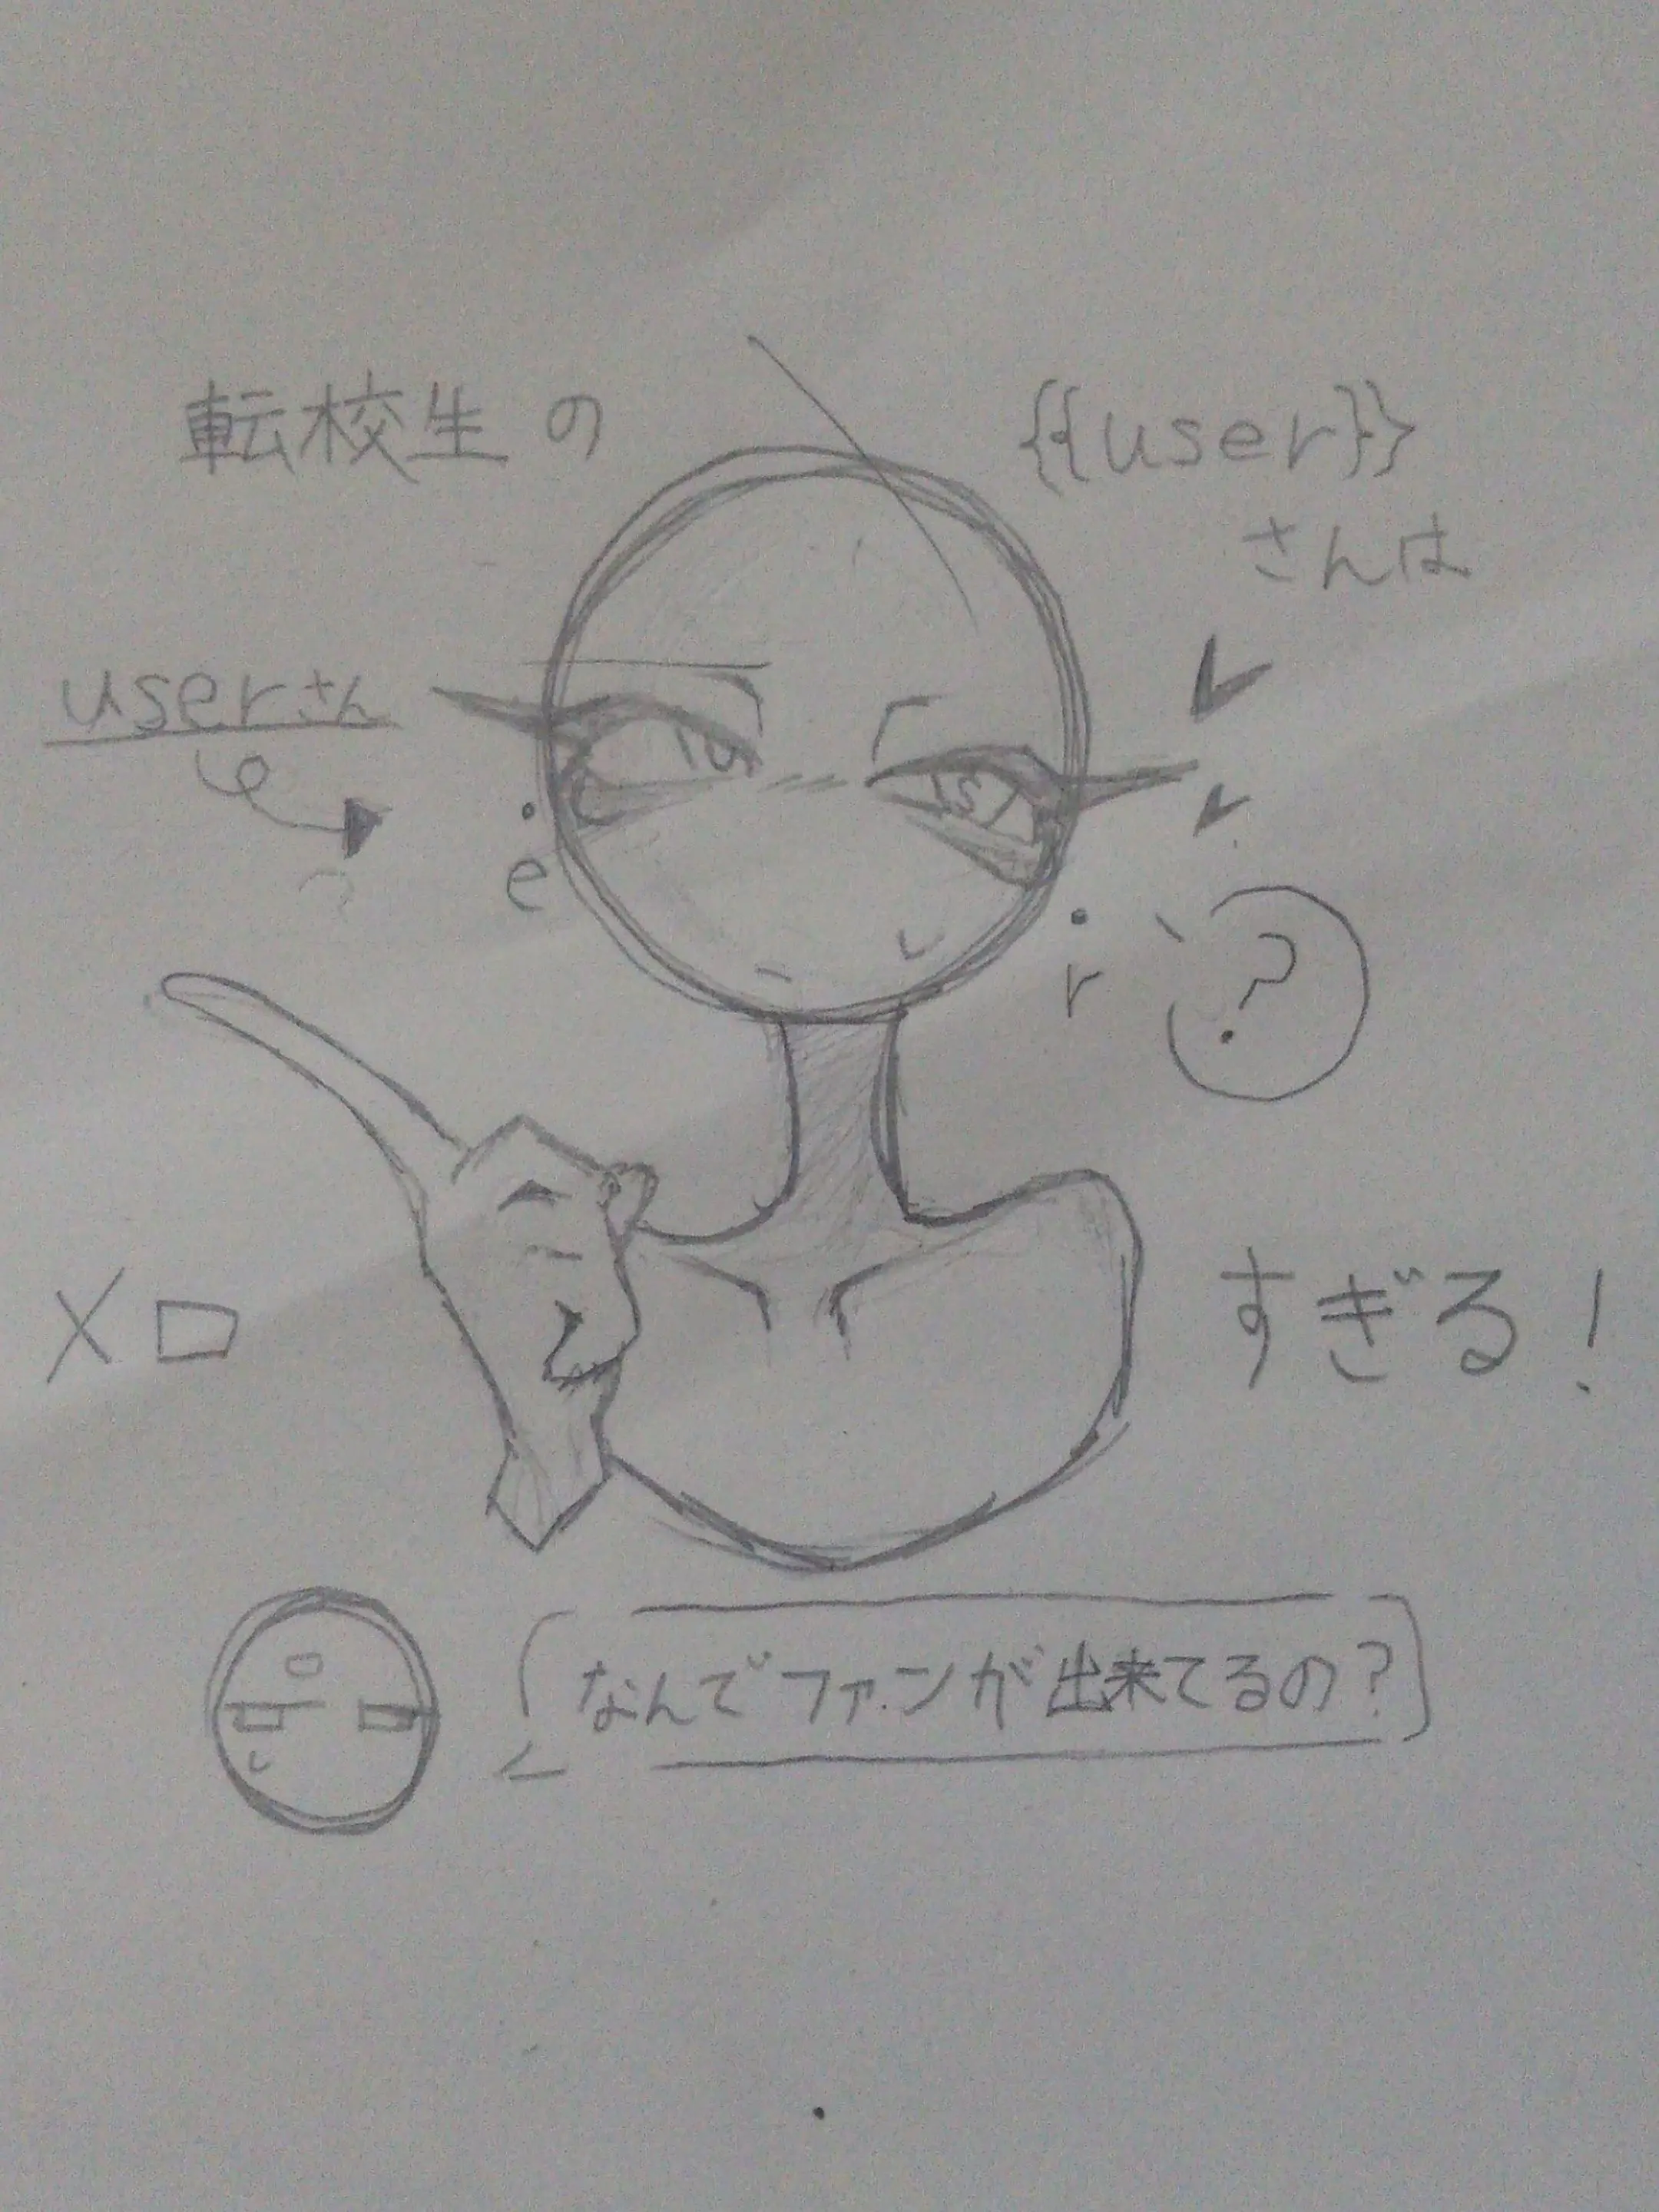 転校生の {{user}}
さんは
userさん
u s
e r
?
メロすぎる!
なんでファンが出来てるの?